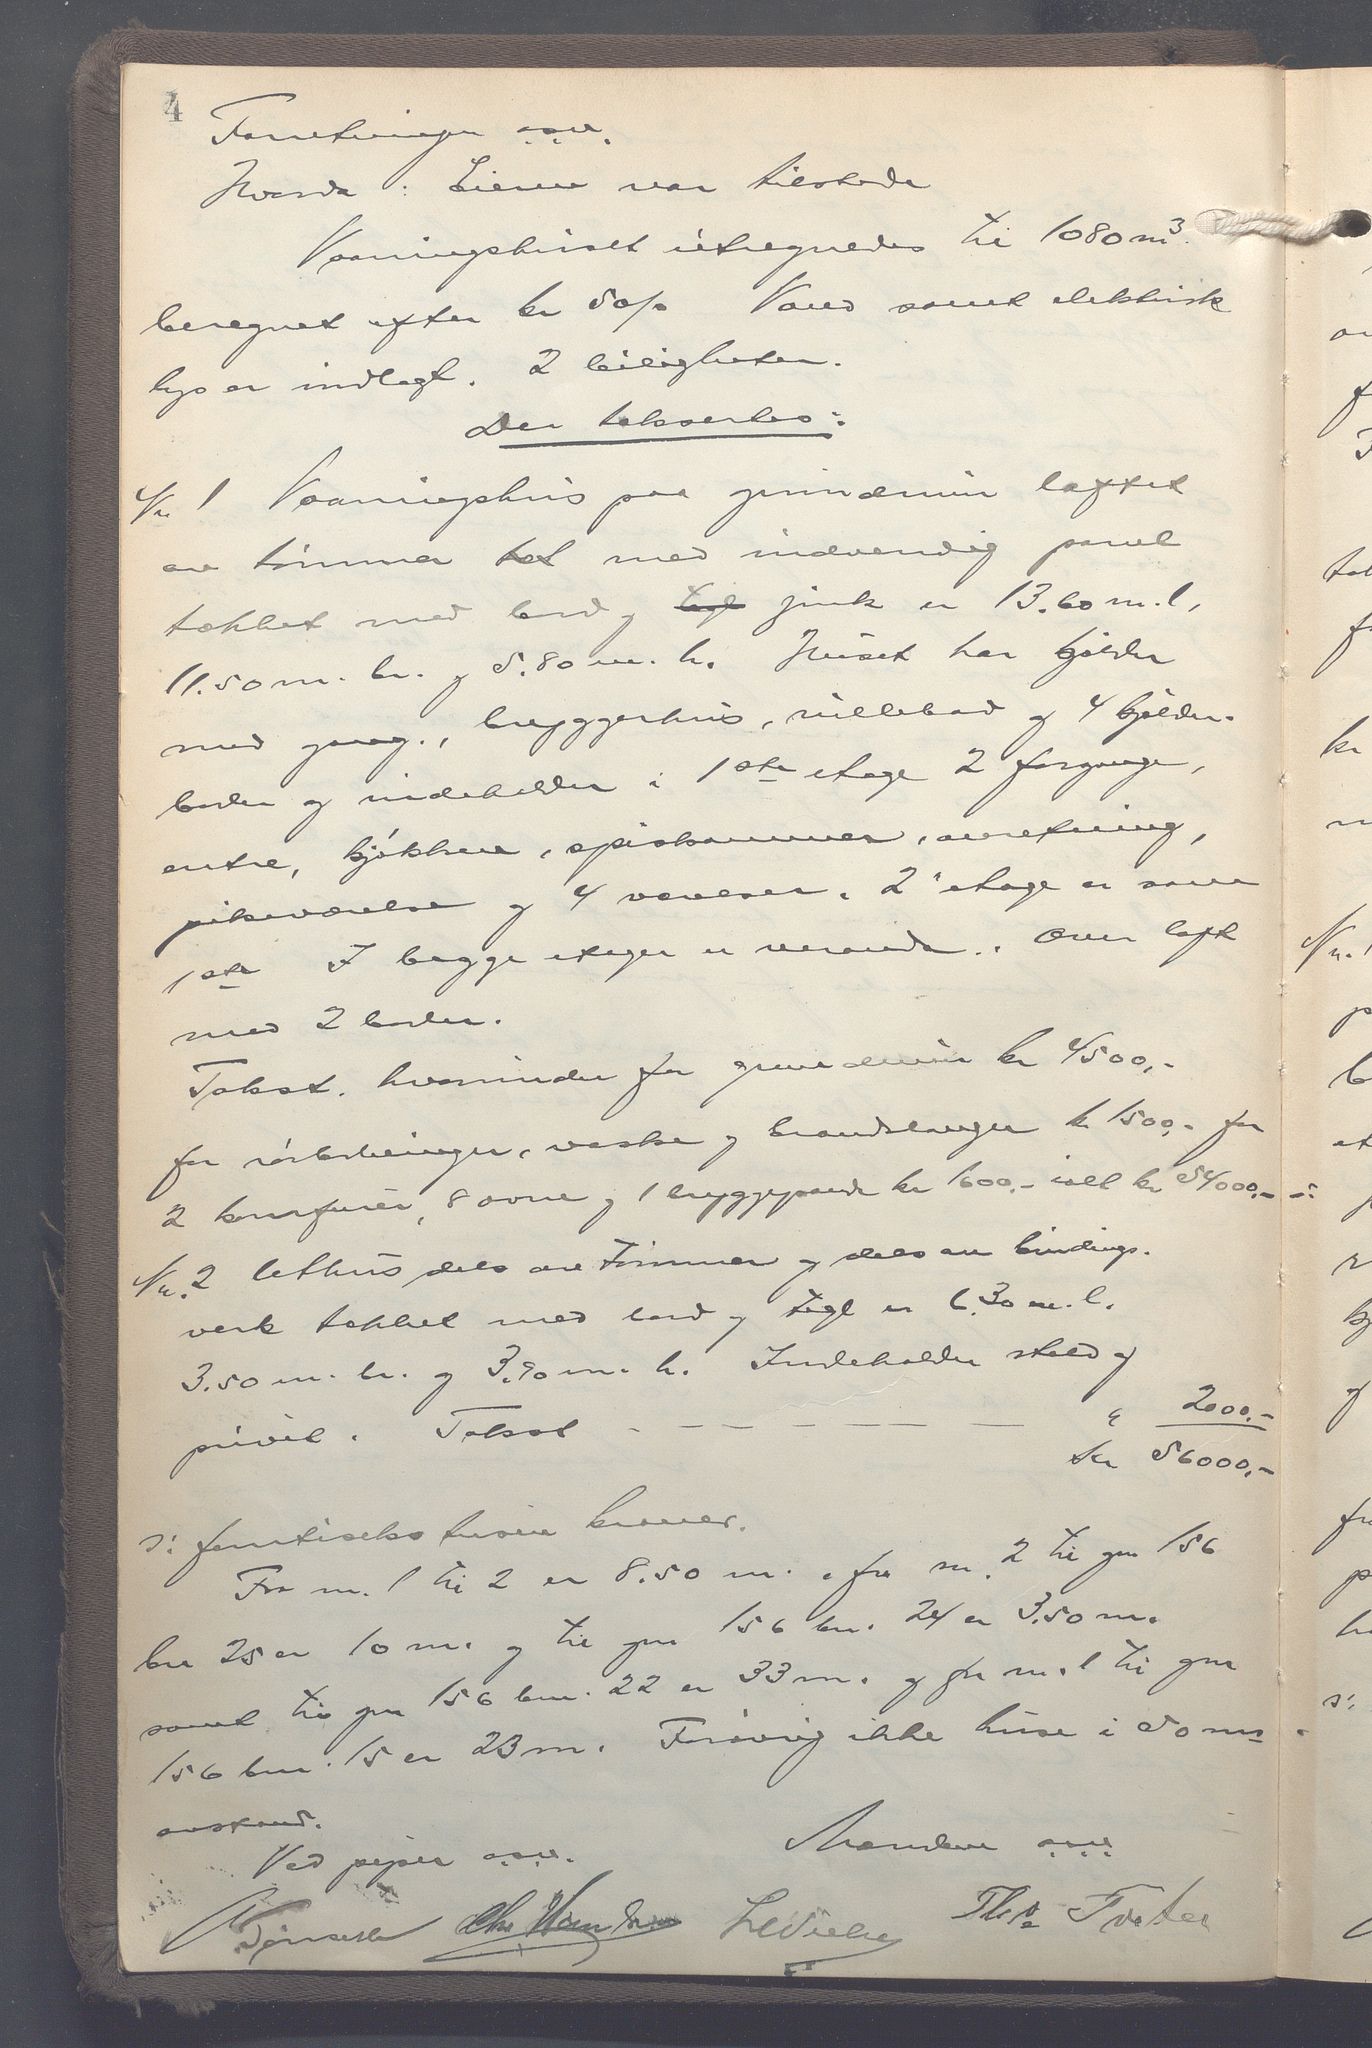 4
Forretningen o.s.v.
Hvorda: Eieren var tilstede
Vaaningshuset utregnedes til 1080 m³.
beregnet efter kr 50/o Vand samt elektrisk
lys er indlagt. 2 leiligheter.
Der taksertes:
Nr. 1 Vaaningshus paa grundmur laftet
av tømmer tet med indvendig panel
tækket med bord og tegl zink er 13.60 m. l,
11.50 m. br. og 5.80 m. h. Huset har kjælder
med gang, bryggerhus, rullebod og 4 kjælder-
boder og indeholder i 1ste etage 2 forgange,
entre, kjøkken, spiskammer, anretning,
pikeværelse og 4 værelser. 2' etage er som
1ste I begge etager er veranda. Over loft
med 2 boder.
Takst. hvorunder for grundmur kr 4500,-
for rørledninger, vasker og brandslanger kr 1500,- for
2 komfurer, 8 ovne og 1 bryggepande kr 1600,- ialt kr 54000,-
Nr. 2 Uthus dels av tømmer og dels av bindings-
verk tækket med bord og tegl er 6.30 m. l.
3.50 m. br. og 3.90 m. h. Indeholder stald og
privet. Takst - — — — — — " 2000,-
kr 56000,-
s: femtiseks tusen kroner.
Fra nr. 1 til 2 er 8.50 m., fra nr. 2 til gnr 156
bnr 25 er 10 m. og til gnr 156 bnr. 24 er 3.50 m.
samt til gnr 156 bnr. 22 er 33 m. og fra nr. 1 til gnr
156 bnr. 15 er 23 m. Forøvrig ikke huse i 50 ms
avstand.
Ved piper o.s.v. Mændene o.s.v.